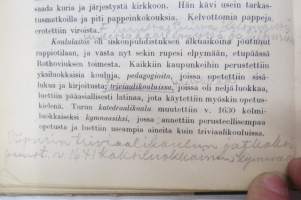 saada kuria ja järjestystä kirkkoon. Hän kävi usein tarkas-
tusmatkoilla ja piti pappeinkokouksia. Kelvottomia pappeja
erotettiin viroista.
Koululaitos oli uskonpuhdistuksen alkuaikoina joutunut
rappiotilaan, ja vasta nyt sekin rupesi elpymään, etupäässä
Rothoviuksen toimesta. Kaikkiin kaupunkeihin perustettiin
yksiluokkaisia kouluja, pedagogioita, joissa opetettiin sisä-
lukua ja kirjoitusta; triviaalikouluissa, joissa oli neljä luokkaa,
luettiin pääasiallisesti latinaa, jota käytettiin myöskin opetus-
kielenä. Turun katedraalikoulu muutettiin v. 1630 kolmi-
luokkaiseksi kymnaasiksi, jossa annettiin perusteellisempaa
opetusta ja luettiin useampia aineita kuin triviaalikouluissa.
Viipurin triviaalikoulun jatkoksi
v. 1641 kaksiluokkainen kymnaasi